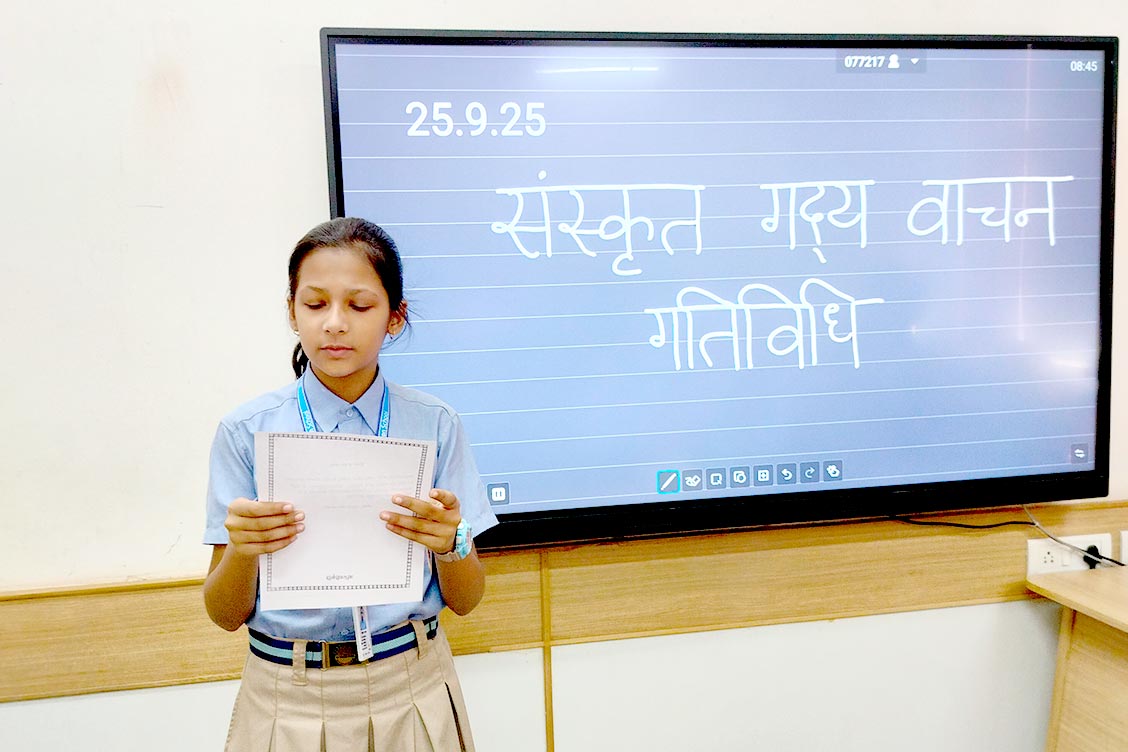 077217
08:45
25.9.25
संस्कृत गद्य वाचन
गतिविधि